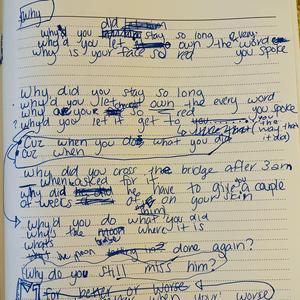 Why
did
Why'd you stay so long
why'd you let own the every word
why is your face so red you spoke
Why did you stay so long
why'd you let own the every word
why so red you spoke
? why'd you let it get to you the
way that
it did)
Cuz when you do what you did
Cuz when
why did you cross the bridge after 3am
when asked for it
why did he have to give a couple
of weeks of on your skin
why'd you do what you did
why's the moon where it is
what's done again?
Why do you still miss him?
for better or worse
when your worse